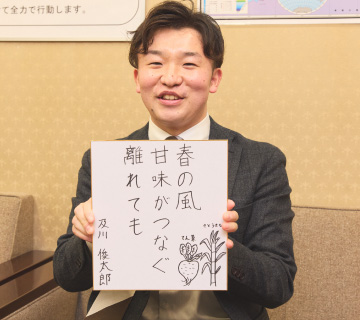 て全力で行動します。
春の風
甘味がつなぐ
離れても
及川 俊太郎
さとうきび
てん菜